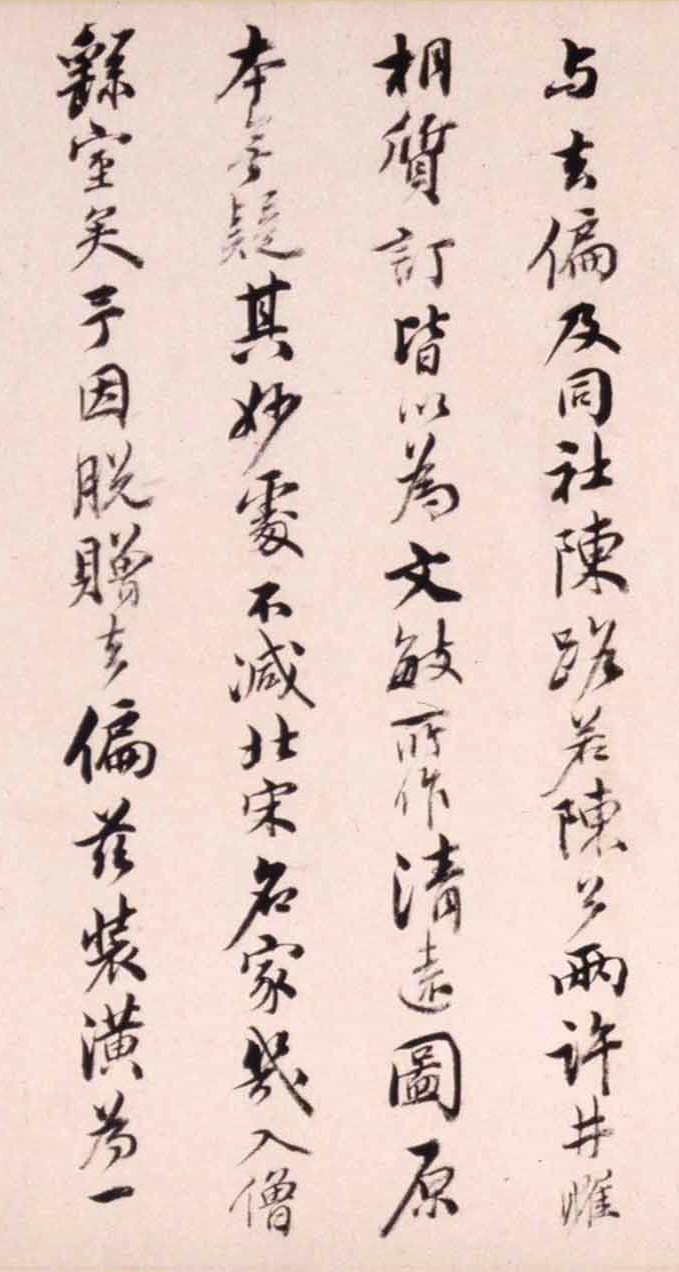 与去偏及同社陳路若陳公兩許井睢
相質訂皆以為文敏所作清遠圖原
本無疑其妙處不減北宋名家幾入僧
繇室矣予因脫贈去偏茲裝潢為一